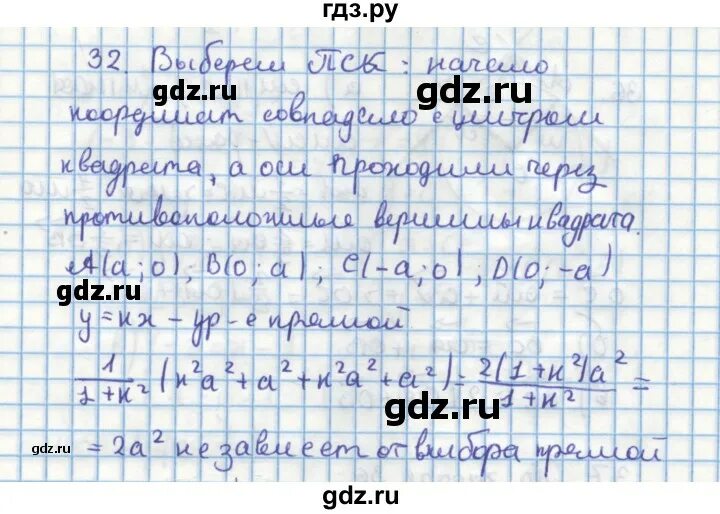 гдз.ру
32. Выберем ПСК : начало
gdz.ru gdz.ru
координат совпадало с центром
квадрата, а оси проходили через
противоположные вершины квадрата.
A(a;0), B(0;a), C(-a;0), D(0;-a)
gdz.ru gdz.ru
y=кx – ур-е прямой
1/(1+к²) (к²a²+a²+к²a²+a²) = 2(1+к²)a²/(1+к²) =
gdz.ru
= 2a² не зависет от выбора прямой
gdz.ru gdz.ru
gdz.ru